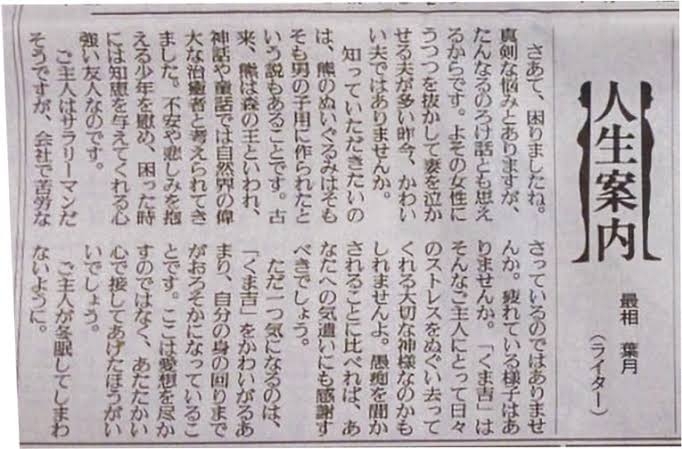 人生案内
最相 葉月
(ライター)
さあて、困りましたね。
真剣な悩みとありますが、
たんなるのろけ話とも思え
るからです。よその女性に
うつつを抜かして妻を泣か
せる夫が多い昨今、かわい
い夫ではありませんか。
知っていただきたいの
は、熊のぬいぐるみはそも
そも男の子用に作られたと
いう説もあることです。古
来、熊は森の王といわれ、
神話や童話では自然界の偉
大な治癒者と考えられてき
ました。不安や悲しみを抱
える少年を慰め、困った時
には知恵を与えてくれる心
強い友人なのです。
ご主人はサラリーマンだ
そうですが、会社で苦労な
さっているのではありませ
んか。疲れている様子はあ
りませんか。「くま吉」は
そんなご主人にとって日々
のストレスをぬぐい去って
くれる大切な神様なのかも
しれませんよ。愚痴を聞か
されることに比べれば、あ
なたへの気遣いにも感謝す
べきでしょう。
ただ一つ気になるのは、
「くま吉」をかわいがるあ
まり、自分の身の回りまで
がおろそかになっているこ
とです。ここは愛想を尽か
すのではなく、あたたかい
心で接してあげたほうがい
いでしょう。
ご主人が冬眠してしまわ
ないように。